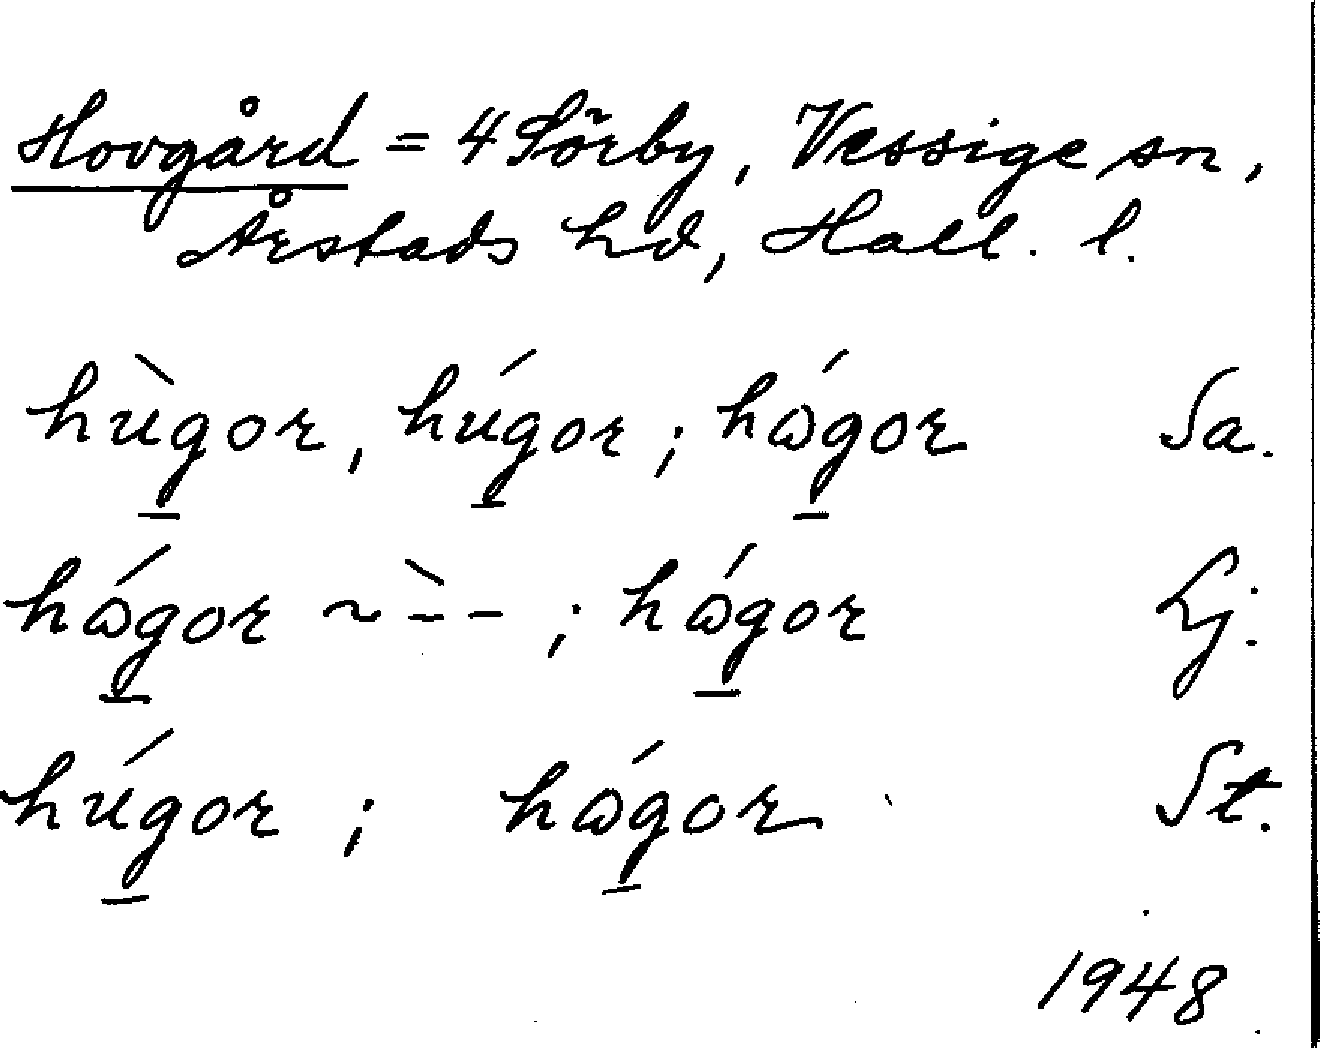 Hovgård = 4 Sörby, Vessige sn,
Årstads hd, Hall. l.
hùg̲or, húg̲or; hώg̲or Sa.
hώg̲or ~ -̀ - ; hώg̲or Lj.
húg̲or ; hώg̲or St.
1948.